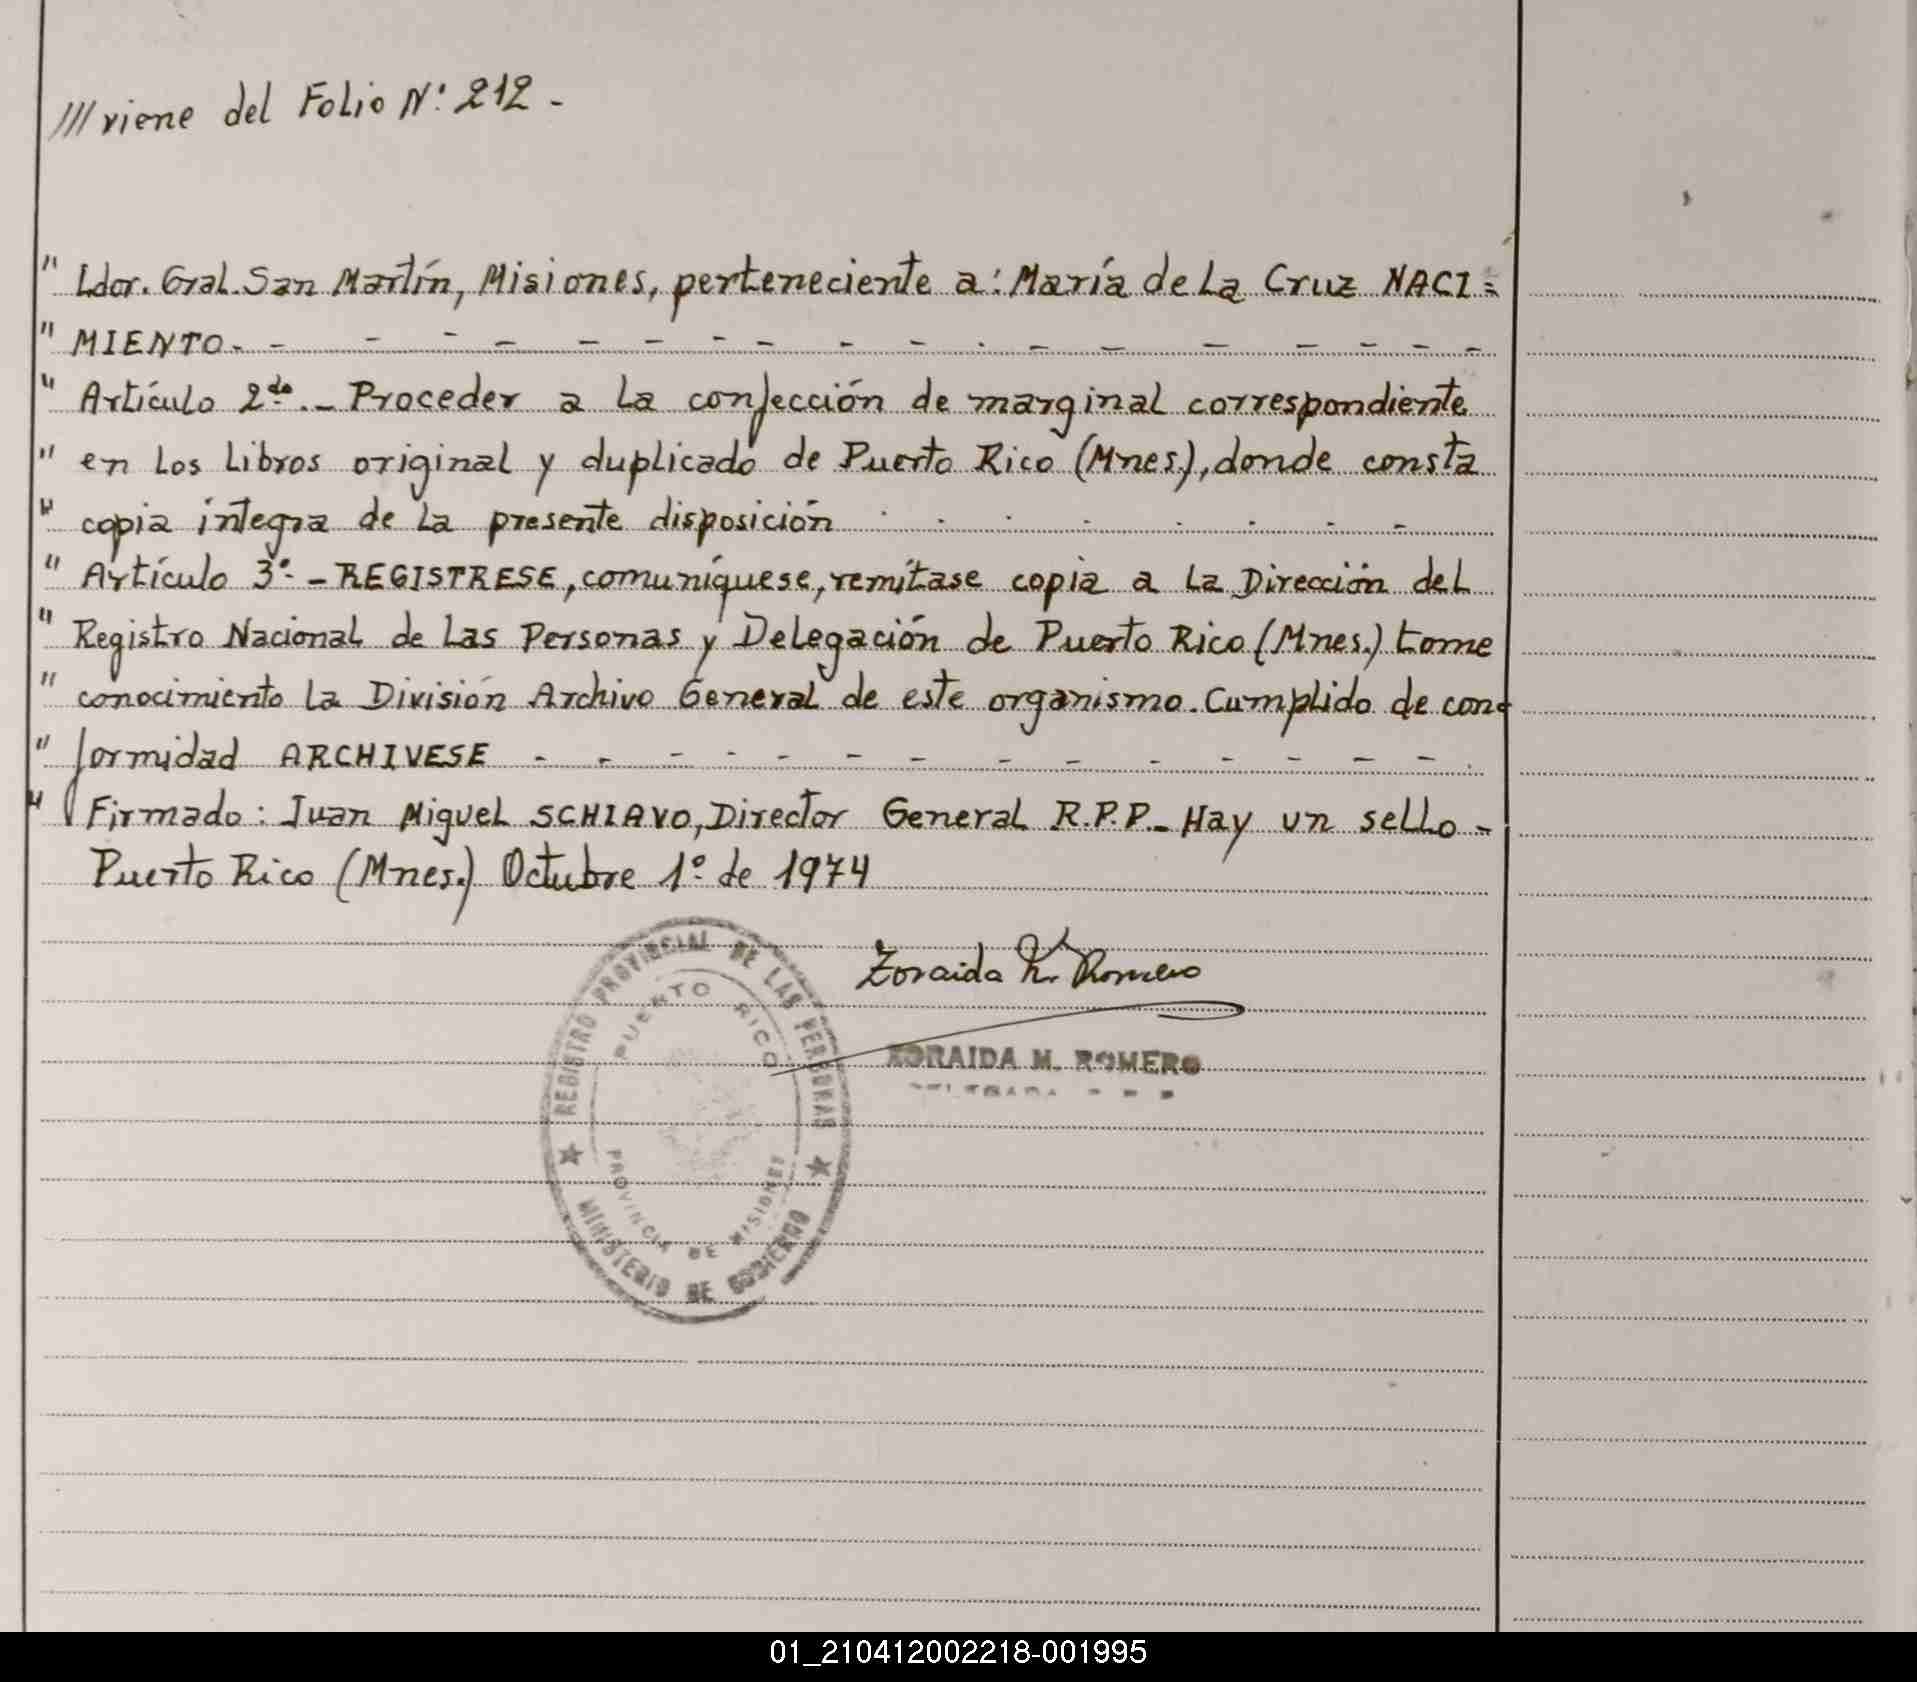 /// viene del Folio N: 212 -
" Ldor. Gral. San Martín, Misiones, perteneciente a: María de La Cruz NACI =
" MIENTO. - - - - - - - - - - - - - - - - - -
" Artículo 2do. _ Proceder a la confección de marginal correspondiente
" en los Libros original y duplicado de Puerto Rico (Mnes.), donde consta
" copia íntegra de la presente disposición . . . . . . . -
" Artículo 3º - REGISTRESE, comuníquese, remítase copia a la Dirección del
" Registro Nacional de las Personas y Delegación de Puerto Rico (Mnes.) tome
" conocimiento la División Archivo General de este organismo. Cumplido de con=
" formidad ARCHIVESE - - - - - - - - - - - - - .
" Firmado: Juan Miguel SCHIAVO, Director General R.P.P._ Hay un sello -
Puerto Rico (Mnes.) Octubre 1º de 1974
Zoraida M. Romero
ZORAIDA M. ROMERO
DELEGADA
REGISTRO PROVINCIAL DE LAS PERSONAS
PUERTO RICO
PROVINCIA DE MISIONES
★ MINISTERIO DE GOBIERNO ★
01_210412002218-001995